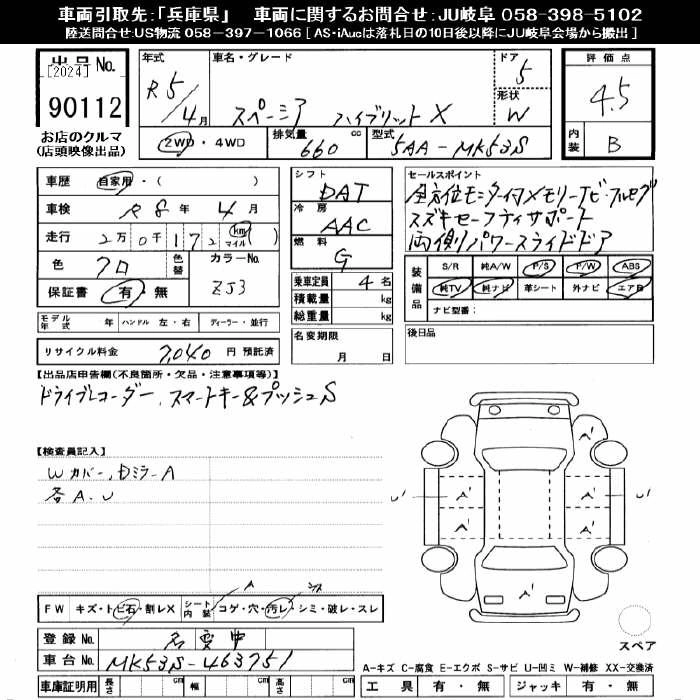 車両引取先：「兵庫県」　車両に関するお問合せ：JU岐阜 058-398-5102
陸送問合せ:US物流 058-397-1066 [ AS・iAucは落札日の10日後以降にJU岐阜会場から搬出 ]
出品 No.
[2024]
90112
お店のクルマ
(店頭映像出品)
年式
R5/4月
車名・グレード
スペーシア ハイブリッド X
ドア
5
形状
W
2WD・4WD
排気量
660 cc
型式
5AA-MK53S
評価点
4.5
内装
B
車歴 自家用・( )
車検 R8年 4月
走行 2万0千172 km マイル ( )
色 クロ
色替
カラーNo.
ZJ3
保証書 有・無
モデル年式 年
ハンドル 左・右
ディーラー・並行
リサイクル料金 7,040 円 預託済
シフト
DAT
冷房
AAC
燃料
G
乗車定員 4 名
積載量 kg
総重量 kg
名変期限
月 日
セールスポイント
全方位モニター付メモリーナビ・フルセグ
スズキセーフティサポート
両側パワースライドドア
装備品
S/R 純A/W P/S P/W ABS
純TV 純ナビ 革シート 外ナビ エアB
ナビ型番：
後日品
【出品店申告欄(不良箇所・欠品・注意事項等)】
ドライブレコーダー、スマートキー&プッシュS
【検査員記入】
Wカバー、ミラーA
各A.U
A'
U' A' A' U'
A' A'
A'
FW キズ・トビ石・割レX
シート内装 コゲ・穴・汚レ・シミ・破レ・スレ
A
登録No. 名変中
車台No. MK53S-463751
車庫証明用 長さ cm 幅 cm 高さ cm
スペア
A-キズ C-腐食 E-エクボ S-サビ U-凹ミ W-補修 XX-交換済
工具 有・無 ジャッキ 有・無